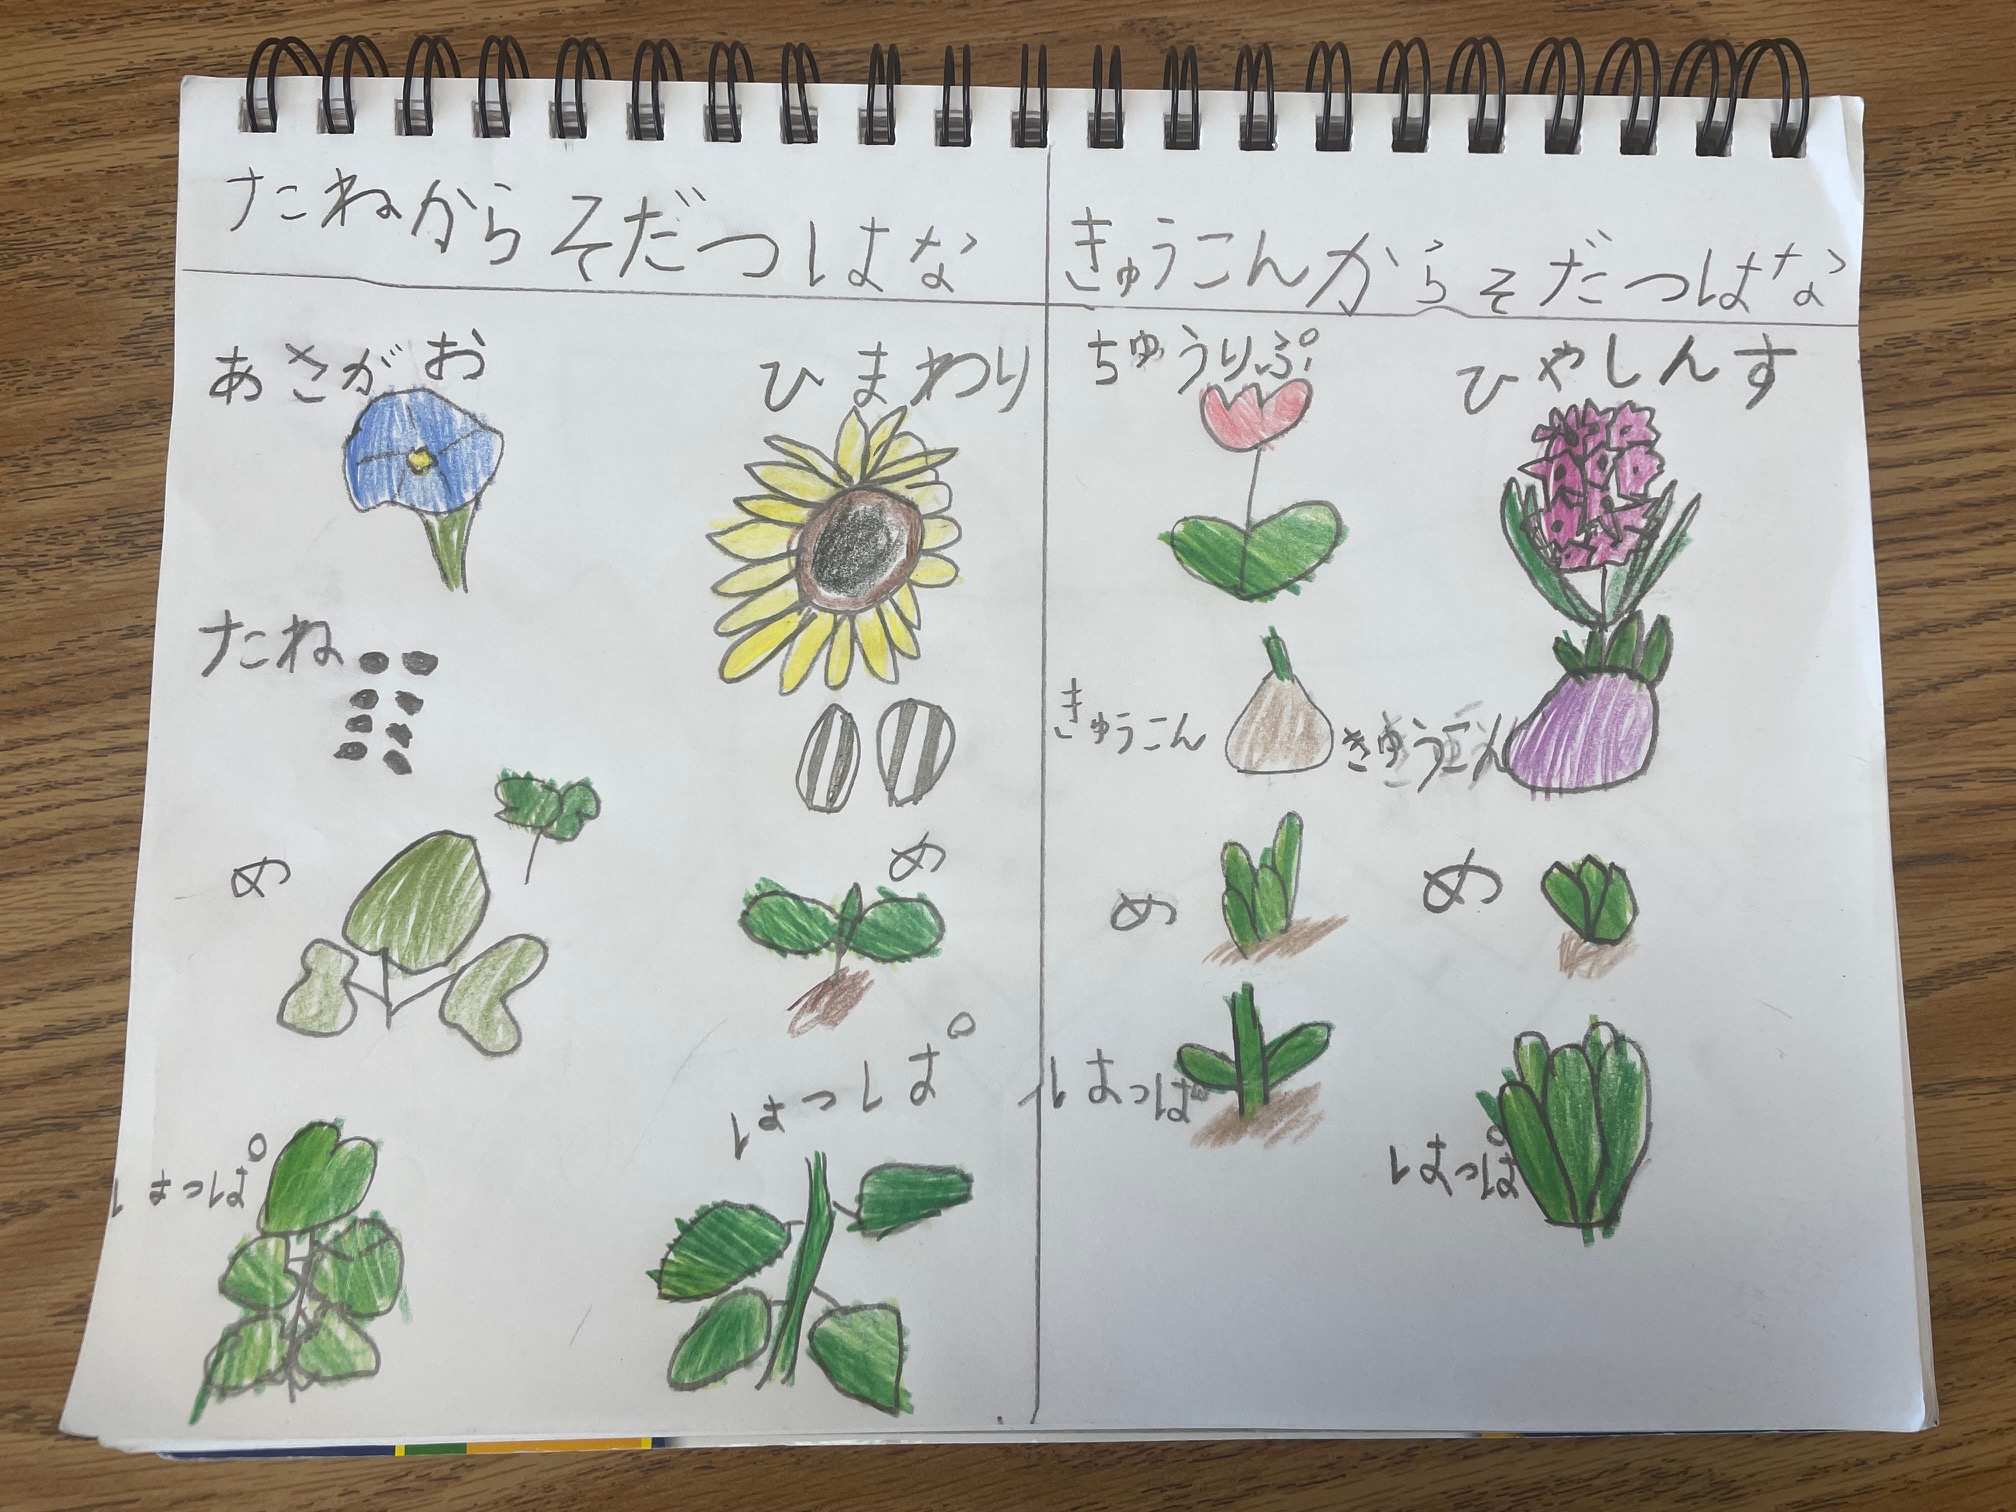 たねからそだつはな
きゅうこんからそだつはな
あさがお
ひまわり
ちゅうりぷ
ひやしんす
たね
きゅうこん
きゅうこん
め
め
め
め
はっぱ
はっぱ
はっぱ
はっぱ